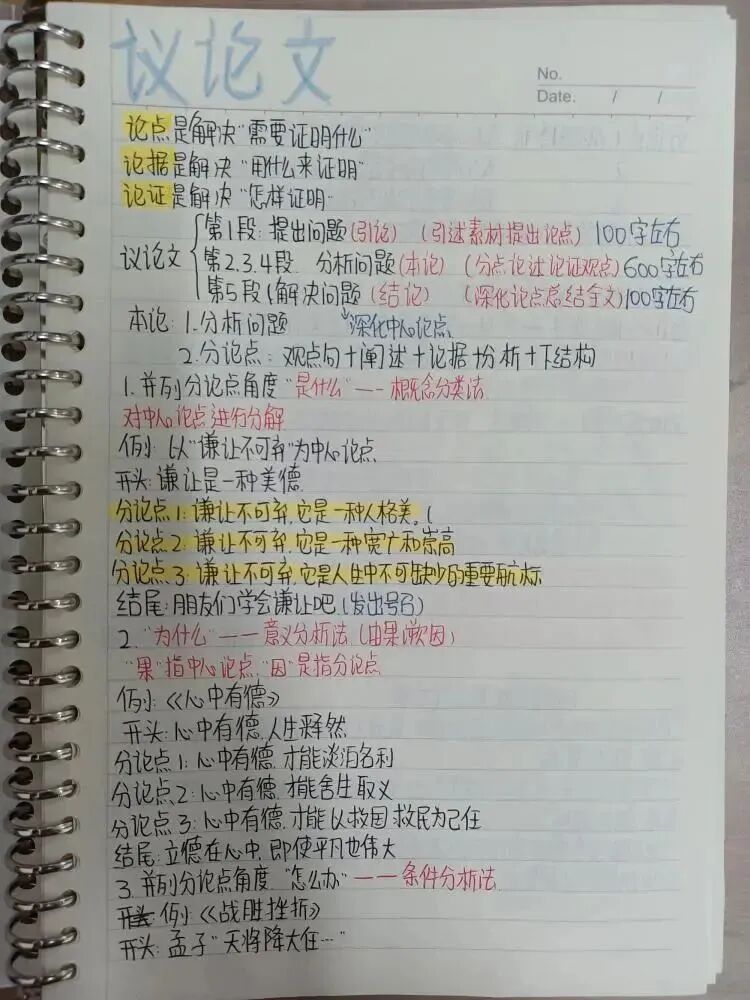 议论文
No.
Date. / /
论点是解决"需要证明什么"
论据是解决"用什么来证明"
论证是解决"怎样证明"
议论文
第1段:提出问题(引论) (引述素材提出论点) 100字左右
第2.3.4段 分析问题(本论) (分点论述论证观点) 600字左右
第5段(解决问题 (结论) (深化论点总结全文) 100字左右
本论: 1.分析问题 深化中心论点
2.分论点: 观点句+阐述+论据+分析+下结构
1.并列分论点角度"是什么"——概念分类法
对中心论点进行分解
例: 以"谦让不可弃"为中心论点
开头:谦让是一种美德
分论点1:谦让不可弃,它是一种人格美。(
分论点2:谦让不可弃,它是一种宽广和崇高
分论点3:谦让不可弃,它是人生中不可缺少的重要航标
结尾:朋友们学会谦让吧(发出号召)
2."为什么"——意义分析法(由果溯因)
"果"指中心论点,"因"是指分论点
例:《心中有德》
开头:心中有德,人生释然
分论点1:心中有德,才能淡泊名利
分论点2:心中有德,才能舍生取义
分论点3:心中有德,才能以救国救民为己任
结尾:立德在心中,即使平凡也伟大
3.并列分论点角度"怎么办"——条件分析法
例:《战胜挫折》
开头:孟子"天将降大任…"